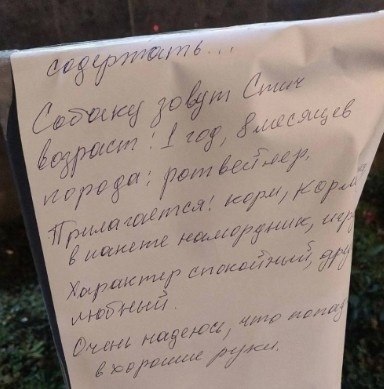 содержать...
Собаку зовут Стич
возраст: 1 год, 8 месяцев
порода: ротвейлер.
Прилагается: корм,
в пакете намордник,
Характер спокойный,
любный.
Очень надеюсь, что
в хорошие руки.